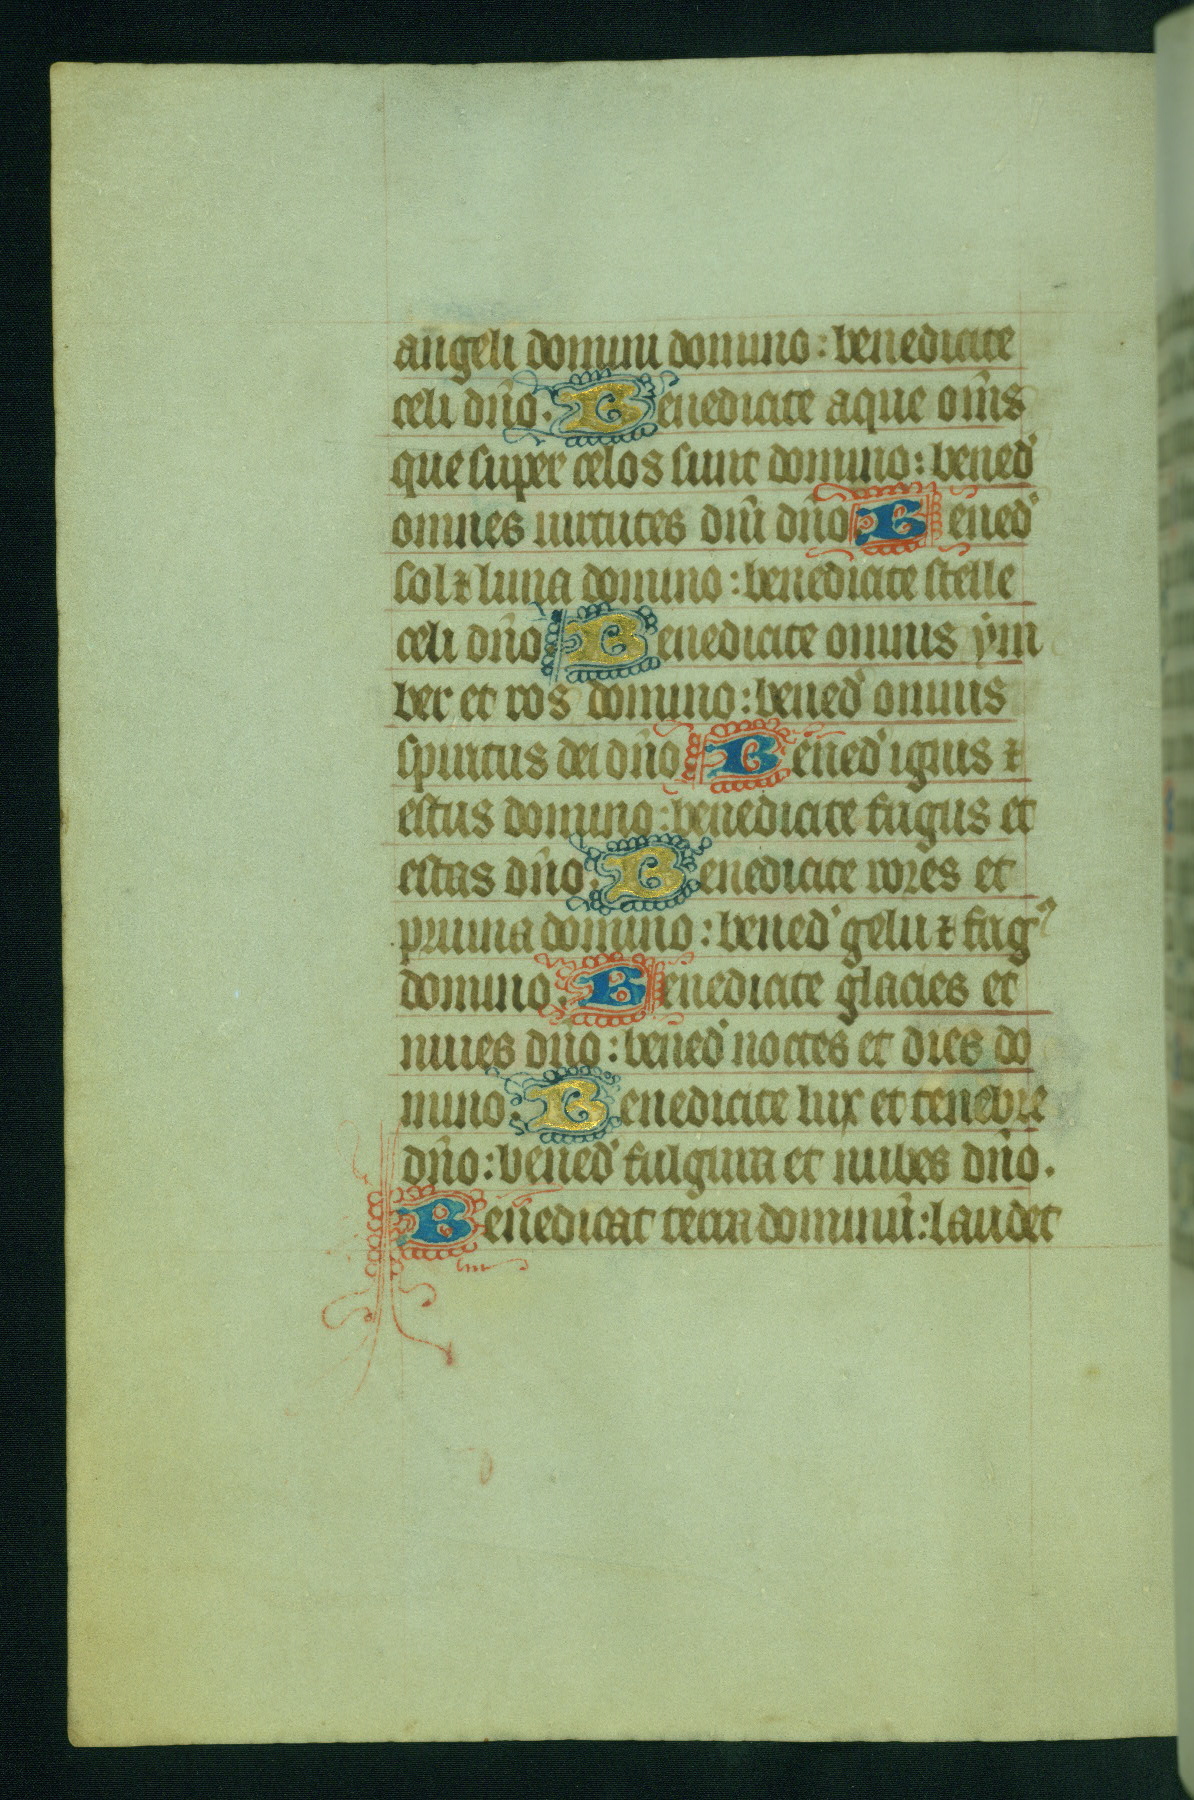 angeli domini domino : benedicite
celi dn̄o . Benedicite aque om̄s
que super celos sunt domino : bened'
omnes uirtutes dn̄i dn̄o Bened'
sol ⁊ luna domino : benedicite stelle
celi dn̄o Benedicite omnis ẏm
ber et ros domino : bened' omnis
spiritus dei dn̄o Bened' ignis ⁊
estus domino : benedicite frigus et
estas dn̄o . Benedicite rores et
pruina domino : bened' gelu ⁊ frigꝰ
domino . Benedicite glacies et
niues dn̄o : bened' noctes et dies do
mino . Benedicite lux et tenebre
dn̄o : bened' fulgura et nubes dn̄o .
Benedicat terra dominū : laudet